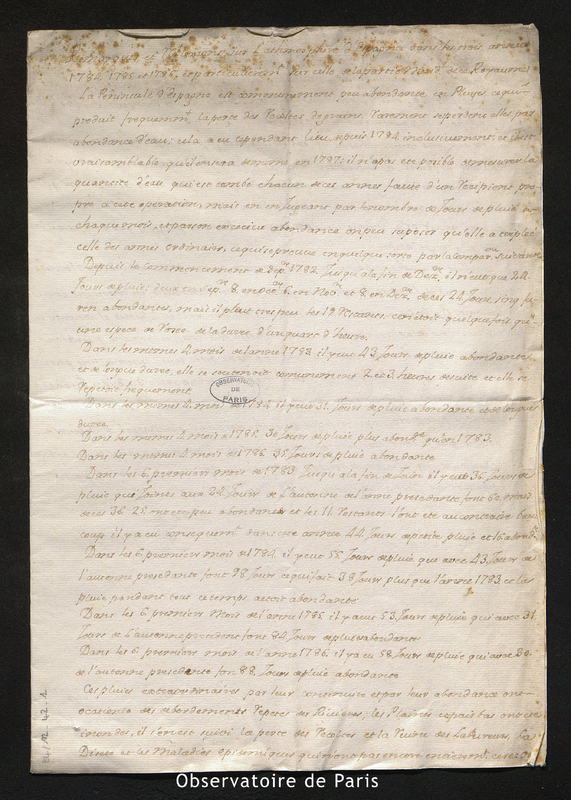 et sur l'atmosphere d'Espagne dans les trois années
1784, 1785 et 1786, et particulierement sur celle de la partie de ce Royaume
La Peninsule d'Espagne est communement peu abondante en Pluyes, ce qui
produit frequemmt la perte des Recoltes de grains, rarement se perdent elles par
abondance d'eau; cela a eu cependant lieu depuis 1784 inclusivement, et il est
vraisemblable qu'il en sera de meme en 1787; il n'a pas eté possible de mesurer la
quantité d'eau qui est tombé chacun de ces années faute d'un Recipient pro-
pre a cette operation, mais en en jugeant par le nombre de Jours de pluie de
chaque mois, et par son excessive abondance on peu suposer qu'elle a triplée
celle des années ordinaires, ce qui se prouve en quelque sorte par la comparon suivante
Depuis le commencement de Sepbre 1782 Jusqu'a la fin de Dezbre il n'eut que 24
Jours de pluie; deux en Sepbre 8 en Octbre 6 en Nobre et 8 en Dezbre de ces 24 Jours, cinq fu-
ren abondantes, mais il plut tres peu les 19 Restantes, car c'etoit quelque fois qu'-
une espece de Rosée de la durée d'un quart d'heure.
Dans les memes 4 mois de l'année 1783 il y eut 43 Jours de pluie abondantes
et de longue durée, elle se soutenoit communement 2 et 3 heures de suite et elle se
Repetoit frequement
Dans les memes 4 mois de 1784 il y eut 31 Jours de pluie abondante et de longue
durée.
Dans les memes 4 mois de 1785. 30 Jours de pluie plus abondte qu'en 1783.
Dans les memes 4 mois de 1786. 35 Jours de pluie abondante
Dans les 6 premiers mois de 1783 Jusqu'a la fin de Juin il y eut 36 Jours de
pluie que Joints aux 24 Jours de l'automne de l'année precedente font 60 mais
de ces 36 25 ont eté peu abondants et les 11 Restants l'ont eté au contraire beau
coup; il y a eu consequemt dans cette année 44 Jours de petite pluie et 16 abondte
Dans les 6 premiers mois de 1784 il y eut 55 Jours de pluie que avec 43 Jours de
l'automne precedente font 98 Jours ce qui fait 38 Jours plus que l'année 1783 et la
pluie pendant tous ce temps etoit abondante
Dans les 6 premiers Mois de l'année 1785 il y a eu 53 Jours de pluie qui avec 31
Jours de l'automne precedent font 84 Jours de pluie abondante
Dans les 6 premiers mois de l'année 1786 il y a eu 58 Jours de pluie qui avec 30
de l'automne precedente fon 88 Jours de pluie abondante
Ces pluies extraordinaires par leur continuité et par leur abondance ont
occasioné des debordements Repetés des Rivieres; les Plaines et pais bas ont eté
inondés, il s'en est suivi la perte des Recoltes et la Ruine des Laboureurs, la
Disete et les Maladies epidemiques qui n'ont pas encore entieremt cessé
OBSERVATOIRE DE PARIS
Observatoire de Paris